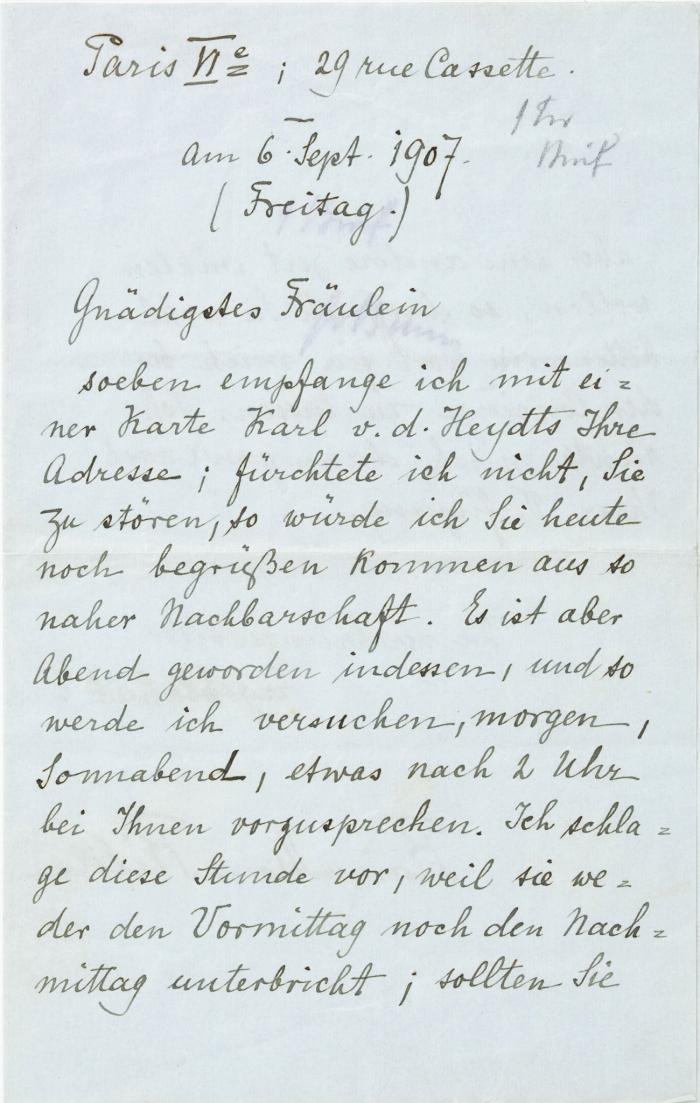 Paris VIe ; 29 rue Cassette.
am 6. Sept. 1907.
(Freitag.)
Gnädigstes Fräulein
soeben empfange ich mit ei=
ner Karte Karl v. d. Heydts Ihre
Adresse ; fürchtete ich nicht, Sie
zu stören, so würde ich Sie heute
noch begrüßen kommen aus so
naher Nachbarschaft. Es ist aber
Abend geworden indessen, und so
werde ich versuchen, morgen,
Sonnabend, etwas nach 2 Uhr
bei Ihnen vorzusprechen. Ich schla=
ge diese Stunde vor, weil sie we=
der den Vormittag noch den Nach=
mittag unterbricht ; sollten Sie